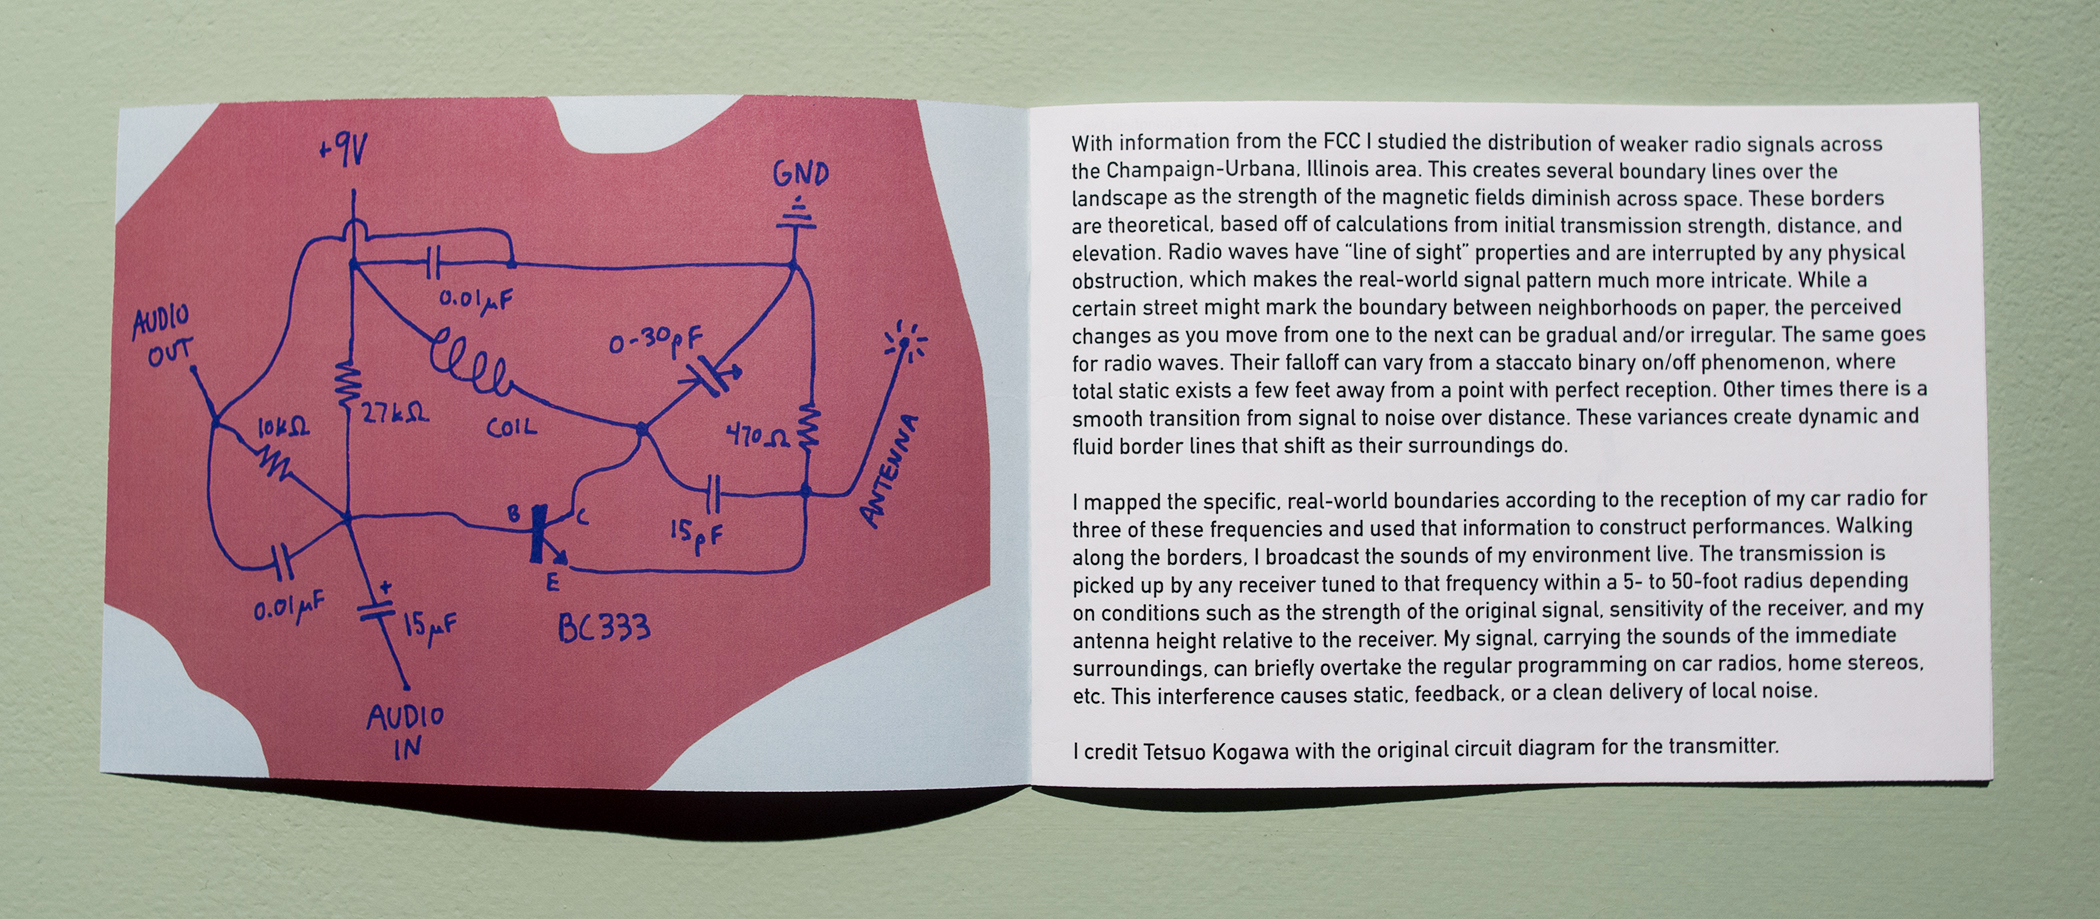 +9V
GND
0.01µF
AUDIO
OUT
0-30pF
10kΩ
27kΩ
COIL
470Ω
ANTENNA
B
C
E
15pF
0.01µF
+
15µF
BC333
AUDIO
IN
With information from the FCC I studied the distribution of weaker radio signals across
the Champaign-Urbana, Illinois area. This creates several boundary lines over the
landscape as the strength of the magnetic fields diminish across space. These borders
are theoretical, based off of calculations from initial transmission strength, distance, and
elevation. Radio waves have “line of sight” properties and are interrupted by any physical
obstruction, which makes the real-world signal pattern much more intricate. While a
certain street might mark the boundary between neighborhoods on paper, the perceived
changes as you move from one to the next can be gradual and/or irregular. The same goes
for radio waves. Their falloff can vary from a staccato binary on/off phenomenon, where
total static exists a few feet away from a point with perfect reception. Other times there is a
smooth transition from signal to noise over distance. These variances create dynamic and
fluid border lines that shift as their surroundings do.
I mapped the specific, real-world boundaries according to the reception of my car radio for
three of these frequencies and used that information to construct performances. Walking
along the borders, I broadcast the sounds of my environment live. The transmission is
picked up by any receiver tuned to that frequency within a 5- to 50-foot radius depending
on conditions such as the strength of the original signal, sensitivity of the receiver, and my
antenna height relative to the receiver. My signal, carrying the sounds of the immediate
surroundings, can briefly overtake the regular programming on car radios, home stereos,
etc. This interference causes static, feedback, or a clean delivery of local noise.
I credit Tetsuo Kogawa with the original circuit diagram for the transmitter.